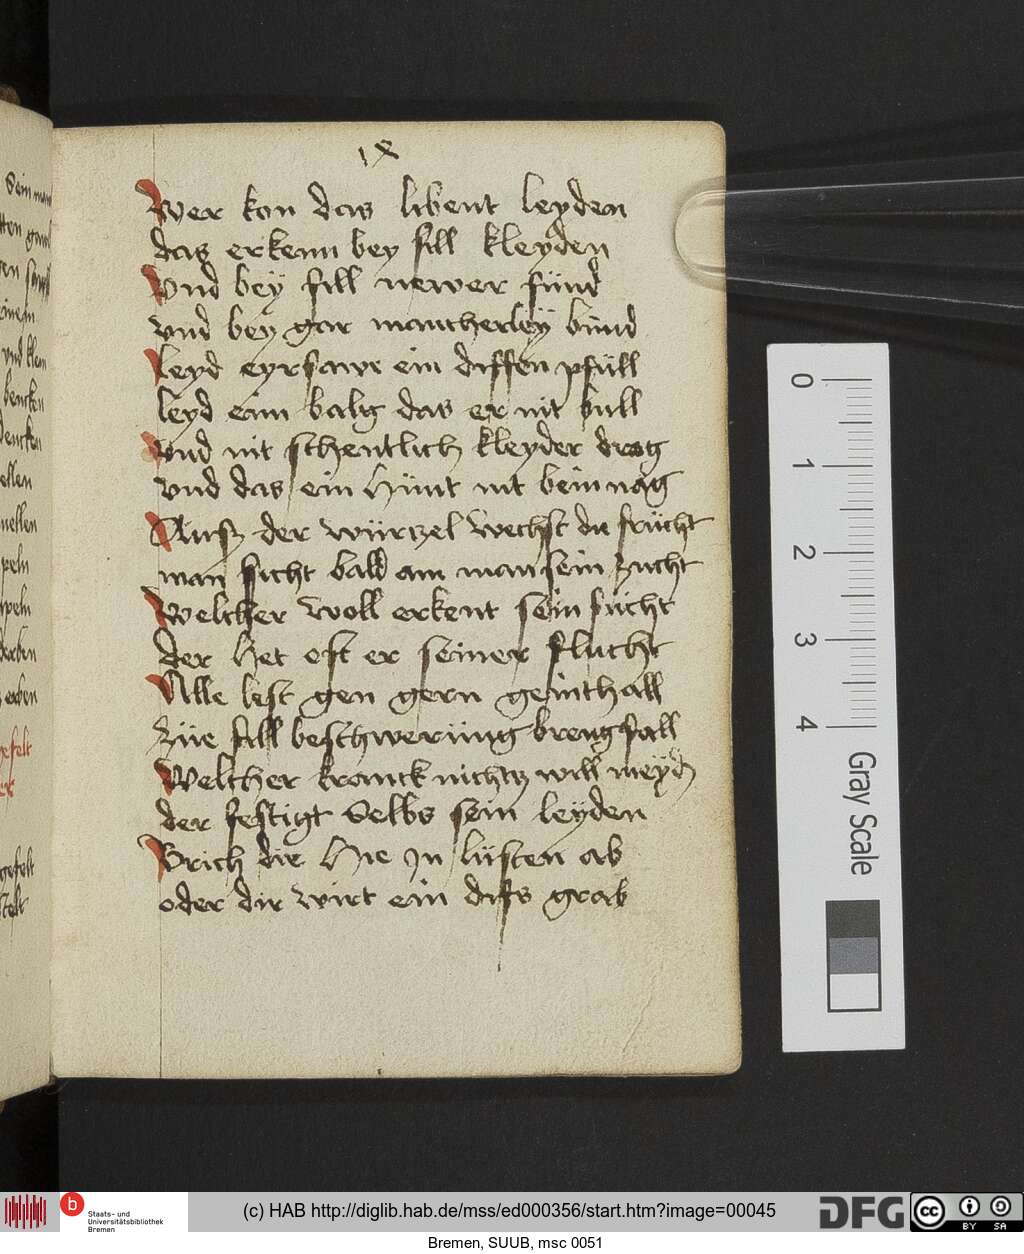 ıx
Wer kon das libent leyden
das erkenn bey fill kleyden
Vnd bey fill newer fünd
vnd bey gar mancherley bünd
leyd eyrsawr ein diffen pfüll
leyd einn balg das er nit bull
vnd nit schentlich kleyder drag
vnd das ein Hünt nit bein nag
Ausz der würtzel wechst du frücht
man sicht bald am man sein zucht
Welcher woll erkent sein sücht
der Het oft er seiner flucht
Alle lest gen gern
Züe fall beschwerüng breng fall
Welcher kranck nichtz will meydn
der festigt selbs sein leyden
Brich die Hie Jn lüsten ab
oder dir wirt ein difs grab
Sein
vnd klein
bencken
dencken
ellen
peln
derben
erben
gefelt
er
gefelt
0
1
2
3
4
Gray Scale
b
Staats- und
Universitätsbibliothek
Bremen
(c) HAB http://diglib.hab.de/mss/ed000356/start.htm?image=00045
DFG
cc
BY SA
Bremen, SUUB, msc 0051